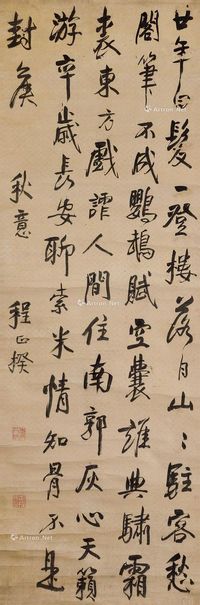 廿年白髮一登樓落月山山駐客愁
閣筆不成鸚鵡賦空囊誰典驌霜
裘東方戲謔人間住南郭灰心天籟
游卒歲長安聊索米情知骨不是
封侯
秋意 程正揆